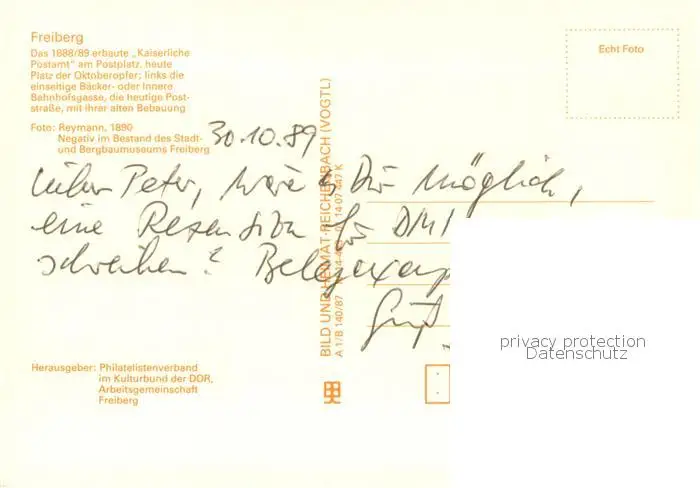 Freiberg
Das 1888/89 erbaute „Kaiserliche
Postamt" am Postplatz, heute
Platz der Oktoberopfer; links die
einseitige Bäcker- oder Innere
Bahnhofsgasse, die heutige Post-
straße, mit ihrer alten Bebauung
Foto: Reymann, 1890
Negativ im Bestand des Stadt-
und Bergbaumuseums Freiberg
Echt Foto
30.10.89
Lieber Peter, wäre es Dir möglich,
eine Rezension für DMI
schreiben? Belegexemp
BILD UND HEIMAT REICHENBACH (VOGTL)
A 1/B 140/87
Herausgeber: Philatelistenverband
im Kulturbund der DDR,
Arbeitsgemeinschaft
Freiberg
privacy protection
Datenschutz